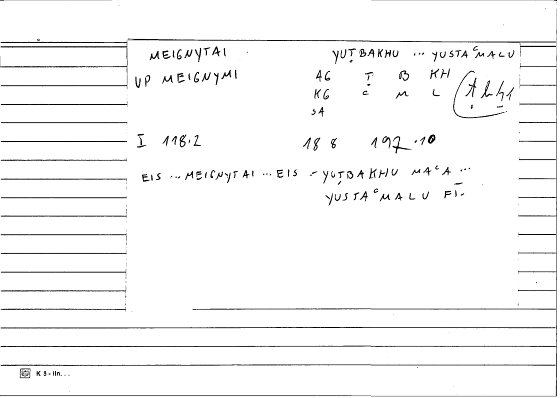 MEIGNYTAI YUṬBAKHU ... YUSTAᶜMALU
UP MEIGNYMI AG Ṭ B KH
KG ᶜ M L
SA
I 118.2 188 197.10
EIS ... MEIGNYTAI ... EIS - YUṬBAKHU MAᶜA ...
YUSTAᶜMALU FĪ.
K 3 - lln. . .